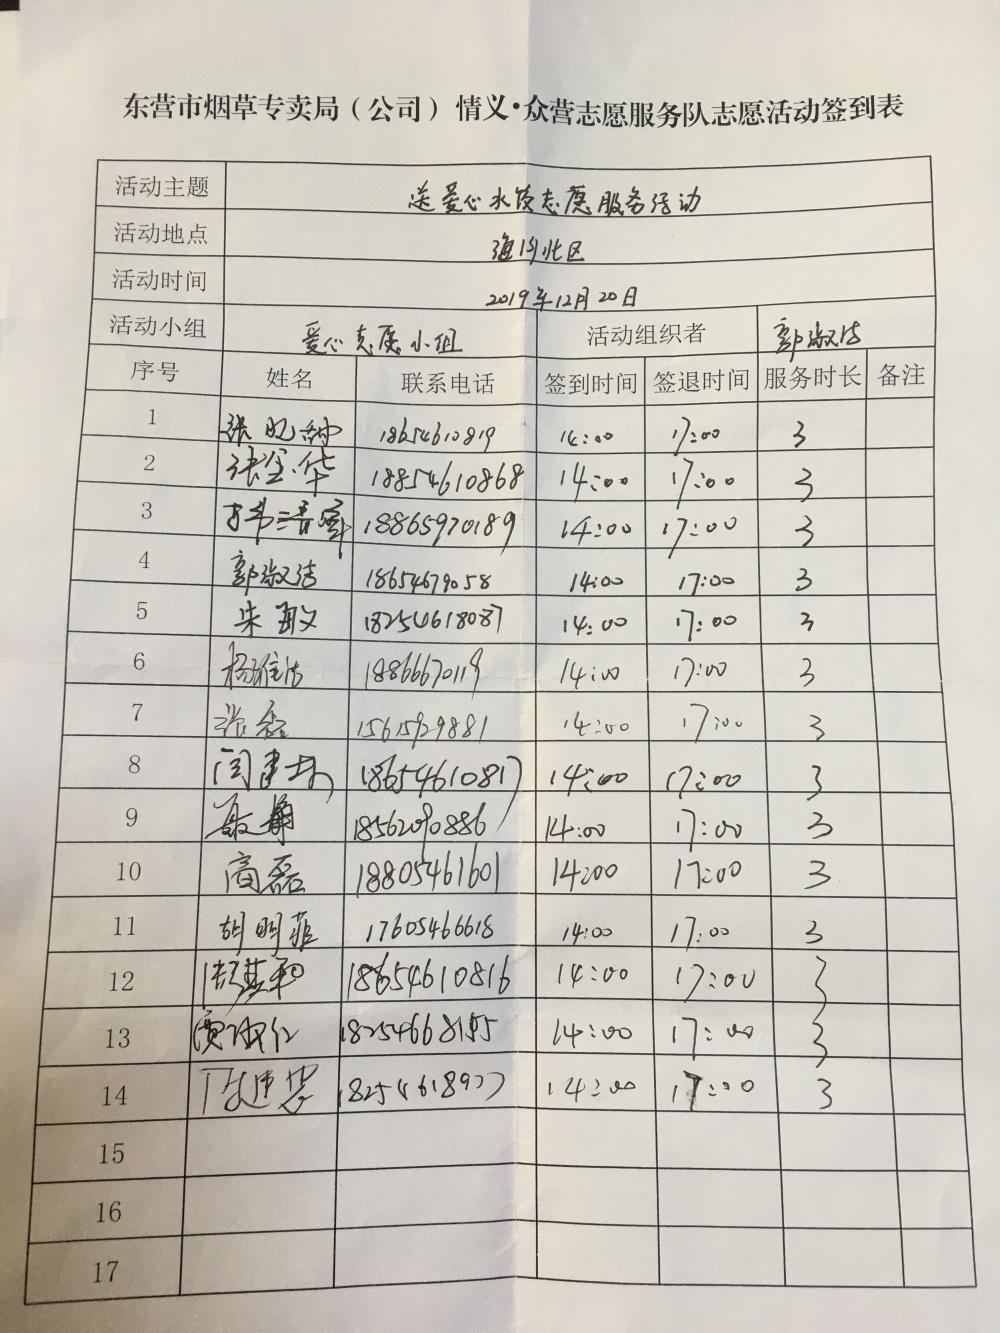 东营市烟草专卖局（公司）情义·众营志愿服务队志愿活动签到表
活动主题 送爱心水饺志愿服务活动
活动地点 北区
活动时间 2019年12月20日
活动小组 爱心志愿小组 活动组织者 郭淑洁
序号 姓名 联系电话 签到时间 签退时间 服务时长 备注
1 张 18654610819 14:00 17:00 3
2 张金华 18854610868 14:00 17:00 3
3 18865970189 14:00 17:00 3
4 郭淑洁 18654679058 14:00 17:00 3
5 朱敏 18254618087 14:00 17:00 3
6 杨雅洁 18866670119 14:00 17:00 3
7 张磊 15615929881 14:00 17:00 3
8 闫建林 18654610817 14:00 17:00 3
9 聂静 18562090886 14:00 17:00 3
10 高磊 18805461601 14:00 17:00 3
11 胡明菲 17605466618 14:00 17:00 3
12 18654610816 14:00 17:00 3
13 14:00 17:00 3
14 18254618977 14:00 17:00 3
15
16
17